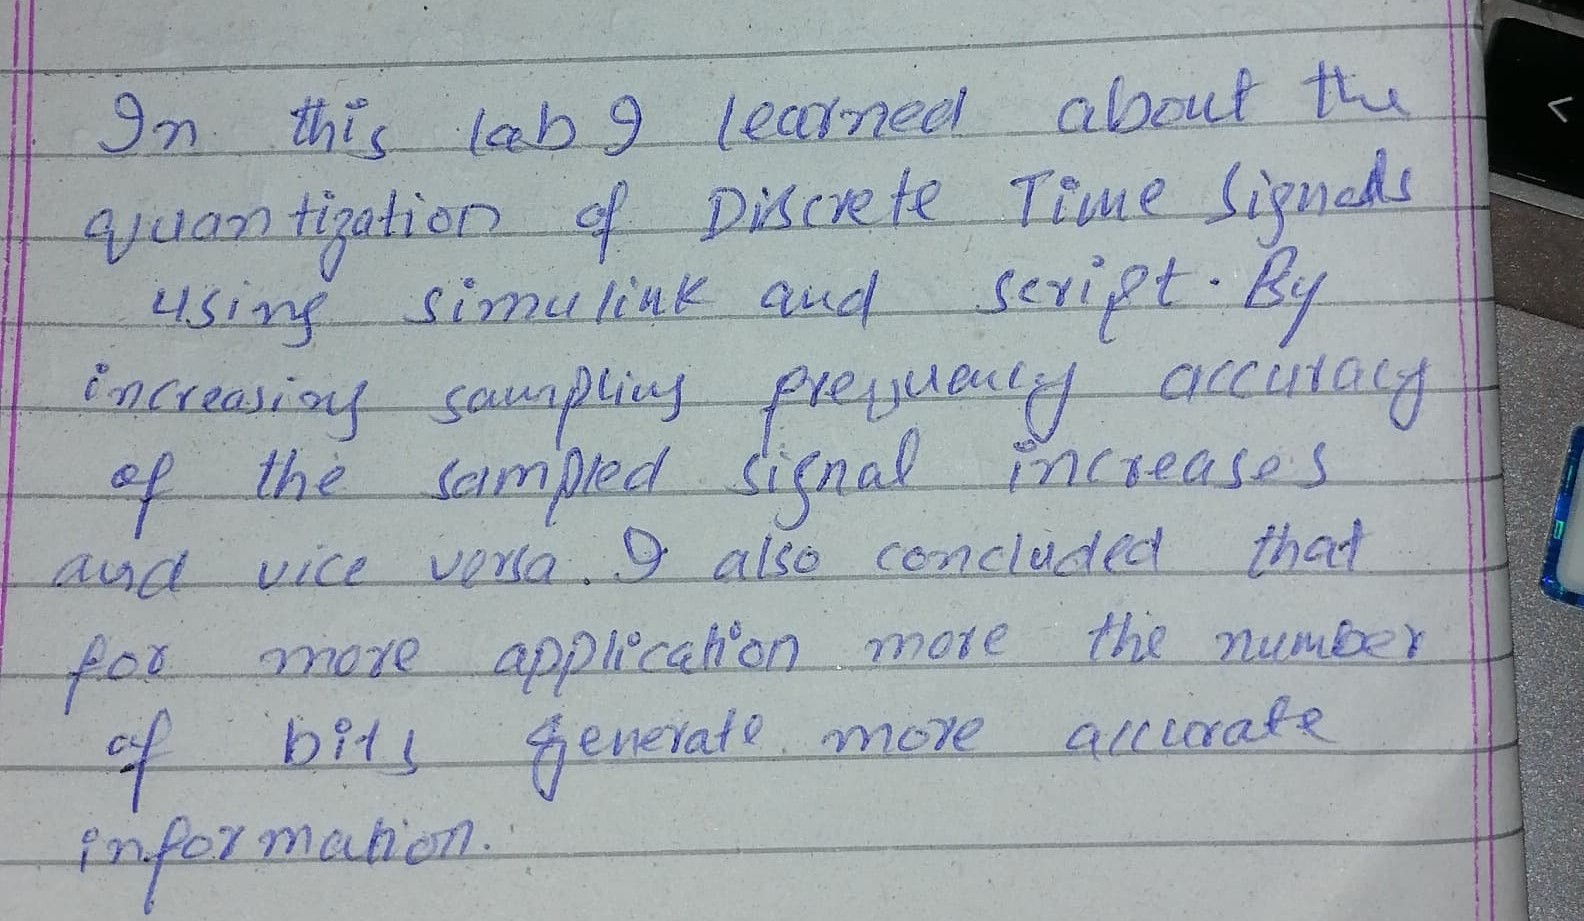 In this lab I learned about the
quantization of Discrete Time Signals
using simulink and script. By
increasing sampling frequency accuracy
of the sampled signal increases
and vice versa. I also concluded that
for more application more the number
of bits generate more accurate
information.